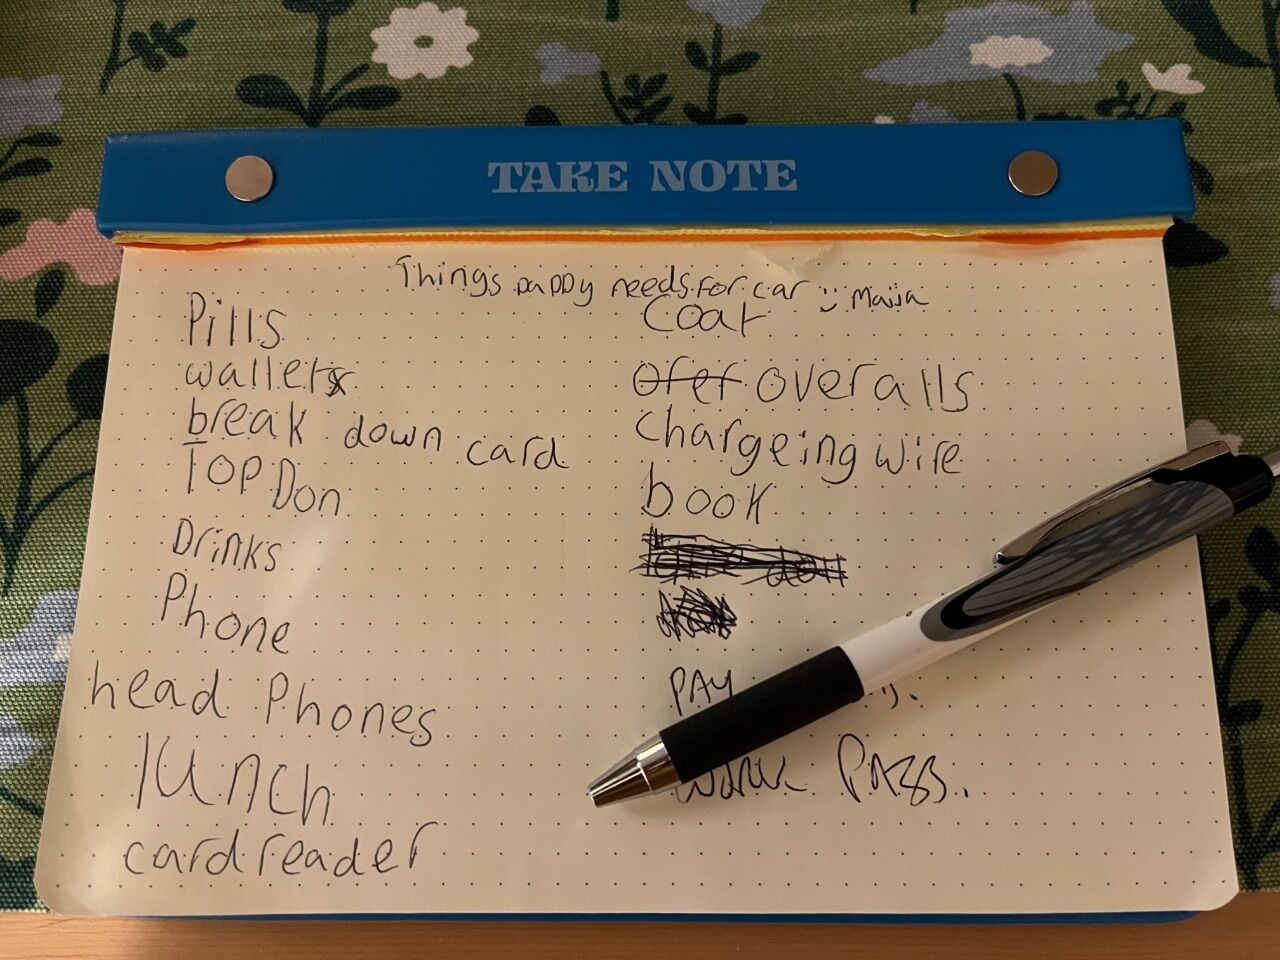 TAKE NOTE
Things DADDY needs for car :) Maija
Pills
wallets
break down card
TOP Don
Drinks
Phone
head Phones
lunch
card reader
coat
ofer overalls
chargeing wire
book
PAY
WORK PASS.